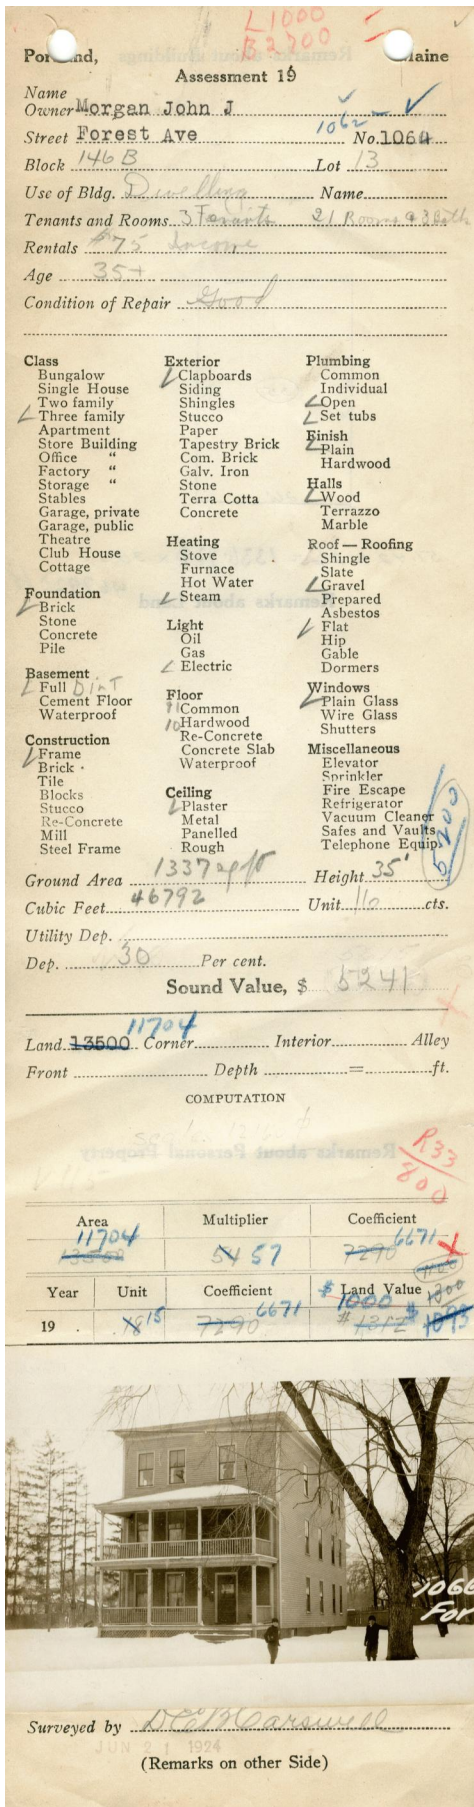 L 1000
B 2700
Portland, Maine
Assessment 19
Name
Owner Morgan John J
1062 -
Street Forest Ave No. 1064
Block 146 B Lot 13
Use of Bldg. Dwelling Name
Tenants and Rooms 3 Tenants 21 Rooms & 3 Baths
Rentals $75 Income
Age 35+
Condition of Repair Good
Class
Bungalow
Single House
Two family
Three family
Apartment
Store Building
Office "
Factory "
Storage "
Stables
Garage, private
Garage, public
Theatre
Club House
Cottage
Foundation
Brick
Stone
Concrete
Pile
Basement
Full Dirt
Cement Floor
Waterproof
Construction
Frame
Brick
Tile
Blocks
Stucco
Re-Concrete
Mill
Steel Frame
Exterior
Clapboards
Siding
Shingles
Stucco
Paper
Tapestry Brick
Com. Brick
Galv. Iron
Stone
Terra Cotta
Concrete
Heating
Stove
Furnace
Hot Water
Steam
Light
Oil
Gas
Electric
Floor
11 Common
10 Hardwood
Re-Concrete
Concrete Slab
Waterproof
Ceiling
Plaster
Metal
Panelled
Rough
Plumbing
Common
Individual
Open
Set tubs
Finish
Plain
Hardwood
Halls
Wood
Terrazzo
Marble
Roof — Roofing
Shingle
Slate
Gravel
Prepared
Asbestos
Flat
Hip
Gable
Dormers
Windows
Plain Glass
Wire Glass
Shutters
Miscellaneous
Elevator
Sprinkler
Fire Escape
Refrigerator
Vacuum Cleaner
Safes and Vaults
Telephone Equip.
5200
Ground Area 1337 sq ft Height 35'
Cubic Feet 46792 Unit 16 cts.
Utility Dep.
Dep. 30 Per cent.
Sound Value, $ 5241
11704
Land 13500 Corner Interior Alley
Front Depth = ft.
COMPUTATION
R33
800
Area Multiplier Coefficient
11704 54 57 7290 6671
Year Unit Coefficient Land Value
19 18 15 7290 6671 $ 1000 $ 1312 1300
1066
For
Surveyed by D C B Carswell
JUN 21 1924
(Remarks on other Side)